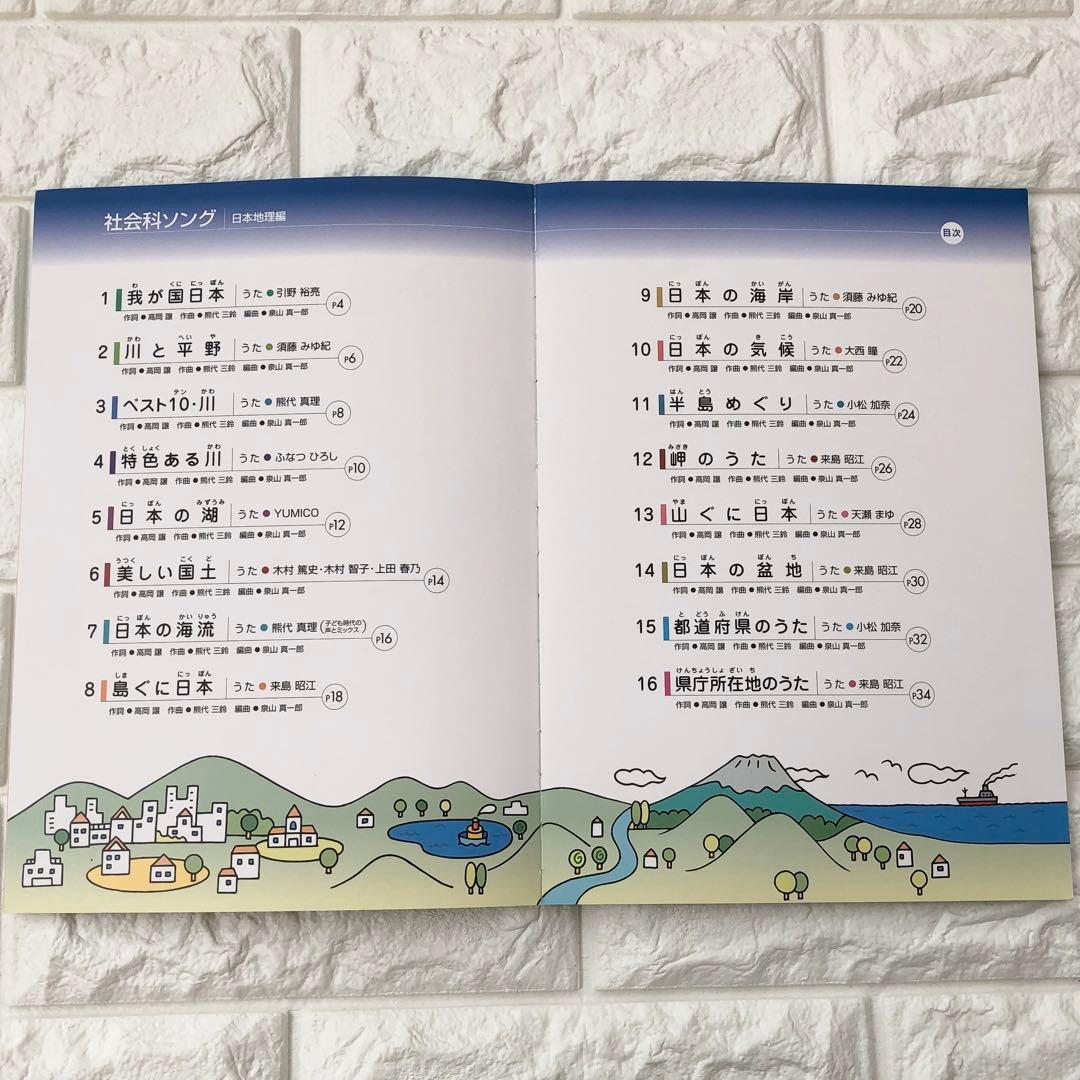 社会科ソング 日本地理編
目次
1 我が国日本 うた●引野 裕亮 P4
わ くに にっ ぽん
作詞●高岡 譲 作曲●熊代 三鈴 編曲●泉山 真一郎
2 川と平野 うた●須藤 みゆ紀 P6
かわ へい や
作詞●高岡 譲 作曲●熊代 三鈴 編曲●泉山 真一郎
3 ベスト10・川 うた●熊代 真理 P8
テン かわ
作詞●高岡 譲 作曲●熊代 三鈴 編曲●泉山 真一郎
4 特色ある川 うた●ふなつ ひろし P10
とく しょく かわ
作詞●高岡 譲 作曲●熊代 三鈴 編曲●泉山 真一郎
5 日本の湖 うた●YUMICO P12
にっ ぽん みずうみ
作詞●高岡 譲 作曲●熊代 三鈴 編曲●泉山 真一郎
6 美しい国土 うた●木村 篤史・木村 智子・上田 春乃 P14
うつく こく ど
作詞●高岡 譲 作曲●熊代 三鈴 編曲●泉山 真一郎
7 日本の海流 うた●熊代 真理(子ども時代の声とミックス) P16
にっ ぽん かい りゅう
作詞●高岡 譲 作曲●熊代 三鈴 編曲●泉山 真一郎
8 島ぐに日本 うた●来島 昭江 P18
しま にっ ぽん
作詞●高岡 譲 作曲●熊代 三鈴 編曲●泉山 真一郎
9 日本の海岸 うた●須藤 みゆ紀 P20
にっ ぽん かい がん
作詞●高岡 譲 作曲●熊代 三鈴 編曲●泉山 真一郎
10 日本の気候 うた●大西 瞳 P22
にっ ぽん き こう
作詞●高岡 譲 作曲●熊代 三鈴 編曲●泉山 真一郎
11 半島めぐり うた●小松 加奈 P24
はん とう
作詞●高岡 譲 作曲●熊代 三鈴 編曲●泉山 真一郎
12 岬のうた うた●来島 昭江 P26
みさき
作詞●高岡 譲 作曲●熊代 三鈴 編曲●泉山 真一郎
13 山ぐに日本 うた●天瀬 まゆ P28
やま にっ ぽん
作詞●高岡 譲 作曲●熊代 三鈴 編曲●泉山 真一郎
14 日本の盆地 うた●来島 昭江 P30
にっ ぽん ぼん ち
作詞●高岡 譲 作曲●熊代 三鈴 編曲●泉山 真一郎
15 都道府県のうた うた●小松 加奈 P32
と どう ふ けん
作詞●高岡 譲 作曲●熊代 三鈴 編曲●泉山 真一郎
16 県庁所在地のうた うた●来島 昭江 P34
けんちょうしょ ざい ち
作詞●高岡 譲 作曲●熊代 三鈴 編曲●泉山 真一郎